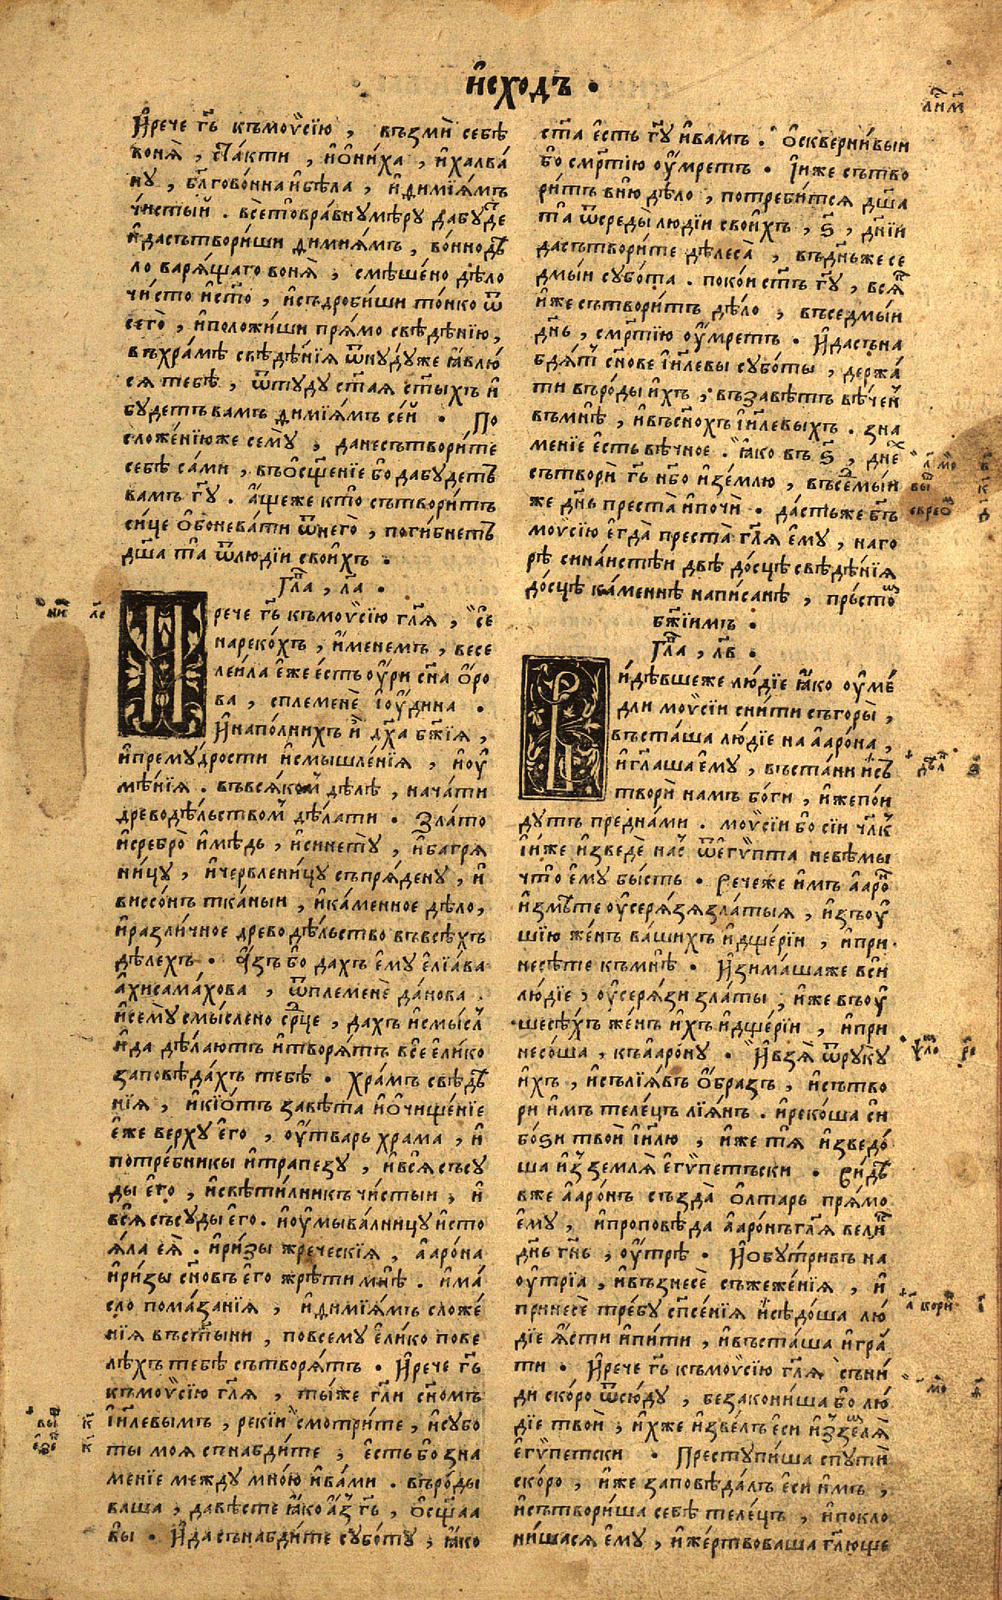 исходъ .
Ирече гь къмоѵсію , възми себѣ
вонѧ , стакти , иониха , ихалва
ну , блговонна ибѣла , идиміѧмъ
чистый . всетовравну мѣру дабуде
идасътвориши димиѧмъ , вонно дѣ
ло варѧщаго вонѧ , смѣшено дѣло
чисто исто , исъдробиши тонко ѿ
сего , иположиши прѧмо свѣдѣнію ,
въхрамѣ свѣдѣніѧ ѿнудуже ꙗвлю
сѧ тебѣ , ѿтуду стаѧ стыхъ и
будетъ вамъ диміѧмъ сей . По
сложеніюже сему , данесътворите
себѣ сами , въосщеніе бо дабудетъ
вамъ гу . ащеже кто сътворитъ
сице обоневати ѿнего , погибнетъ
дша та ѿлюдіи своихъ .
Гла , ла .
рече гь къмоѵсію глѧ , се
нарекохъ , именемъ , весе
леила еже есть оури сна оро
ва , сплемене іоудина .
Инаполнихъ и дха бжіѧ ,
ипремудрости исмышленіѧ , иоу
мѣніѧ . въвсѧком дѣлѣ , начати
древодѣльством дѣлати . Злато
исребро имѣдь , исинету , ибагрѧ
ницу , ичервленицу съпрѧдену , и
виссонъ тканыи , икаменное дѣло ,
иразличное древодѣльство въвсѣхъ
дѣлехъ . Азъ бо дахъ ему еліава
ахисамахова , ѿплемене данова .
исему смыслено срце , дахъ исмысл
ида дѣлаютъ итворѧтъ все елико
заповѣдахъ тебѣ . храмъ свѣдѣ
ніѧ , икіотъ завѣта иочищеніе
еже верху его , оутварь храма , и
потребникы итрапезу , ивсѧ съсу
ды его , исвѣтилникъ чистыи , и
всѧ съсуды его . иоумывалницу исто
ѧла еѧ . иризы жреческіѧ , аарона
иризы сновъ его жрѣти мнѣ . има
сло помазаніѧ , идиміѧмъ сложе
ніѧ въстыни , повсему елико пове
лѣхъ тебѣ сътворѧтъ . Ирече гь
къмоѵсію глѧ , тыже гли сномъ
іилевымъ , рекии смотрите , исубо
ты моѧ снабдите , есть бо зна
меніе между мною ивами . въроды
ваша , давѣсте ꙗко азъ гь , осщаа
вы . Ида сънабдите суботу , ꙗко
ста есть гу ивамъ . оскверниівыи
бо смртію оумретъ . Іиже сътво
ритъ вню дѣло , потребитсѧ дша
та ѿсреды людіи своихъ , ѕ , дніи
дасътворите дѣлеса , въднъже се
дмыи субота . покои стъ гу , всѧ
иже сътворитъ дѣло , въседмыи
днь , смртію оумретъ . Идасъна
бдѧт снове іилевы суботы , держа
ти въроды ихъ , възавѣтъ вѣчен
въмнѣ , ивъснохъ іилевыхъ . зна
меніе есть вѣчное . ꙗко въ ѕ , дне
сътвори гь нбо иземлю , въсемыи
же днь преста ипочи . дастъже бгъ
моѵсію егда преста глѧ ему , наго
рѣ синаистеи двѣ досцѣ свѣдѣніѧ
досцѣ каменнѣ написанѣ , пръсто
бжіимъ .
Гла , лв .
идѣвшеже людіе ꙗко оуме
дли моѵсіи снити съгоры ,
въсташа людіе на аарона ,
иглаша ему , въстани исъ
твори намъ боги , ижепои
дутъ преднами . моѵсіи бо сіи члк
іиже изведе нас ѿегѵпта невѣмы
что ему бысть . Речеже имъ ааро
измѣте оусерѧзѧзлатыѧ , изъоу
шію женъ вашихъ идщеріи , ипри
несѣте къмнѣ . Изимашаже вси
людіе , оусерѧзи златы , иже въоу
шесѣхъ женъ ихъ идщеріи , ипри
несоша , къаарону . Ивзѧ ѿруку
ихъ , исъліѧвъ образъ , исътво
ри имъ телецъ ліѧнъ . ирекоша си
боѕи твои іилю , иже тѧ изведо
ша изземлѧ егѵпетъски . Видѣ
вже ааронъ създа олтарь прѧмо
ему , ипроповѣда ааронъглѧ вели
днь гнь , оутрѣ . Иобутривъ на
оутріа , ивъзнесе съжеженіѧ , и
принесе требу спсеніѧ исѣдоша лю
діе ѧсти ипити , ивъсташа игра
ти . Ирече гь къмоѵсію глѧ сни
ди скоро ѿсюду , безакониша бо лю
діе твои ; ихже извелъ еси иззелѧ
егѵпетски . Преступиша спути
скоро , иже заповѣдалъ еси имъ ,
исътвориша себѣ телецъ , ипокло
нишасѧ ему , ижертвоваша глюще